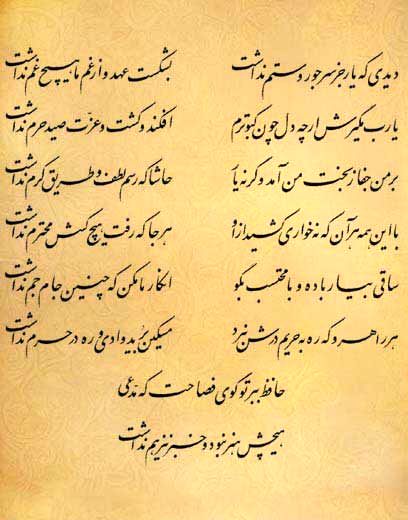 دیدی که یار جز سر جور و ستم نداشت بشکست عهد و از غم ما هیچ غم نداشت
یارب مگیرش ارچه دل چون کبوترم افکند و کشت و عزّت صید حرم نداشت
بر من جفا ز بخت من آمد وگرنه یار حاشا که رسم لطف و طریق کرم نداشت
با این همه هر آن که نه خواری کشید از او هر جا که رفت هیچ کسش محترم نداشت
ساقی بیار باده و با محتسب بگو انکار ما مکن که چنین جام جم نداشت
هر راهرو که ره به حریم درش نبرد مسکین بُرید وادی و ره در حرم نداشت
حافظ ببر تو گوی فصاحت که مدّعی
هیچش هنر نبود و خبر نیز هم نداشت